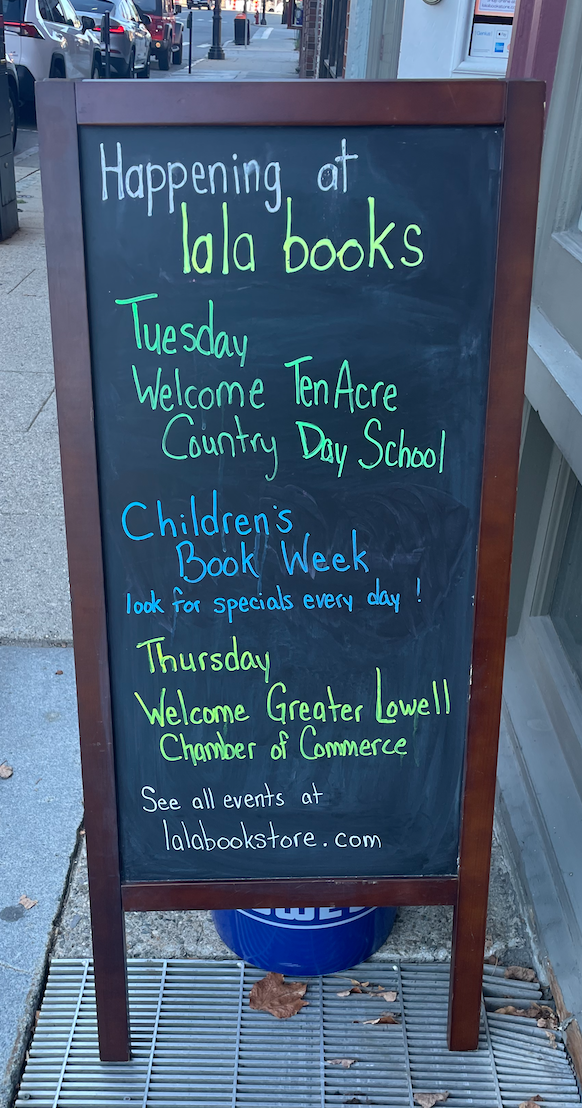 Happening at
lala books
Tuesday
Welcome TenAcre
Country Day School
Children's
Book Week
look for specials every day !
Thursday
Welcome Greater Lowell
Chamber of Commerce
See all events at
lalabookstore.com